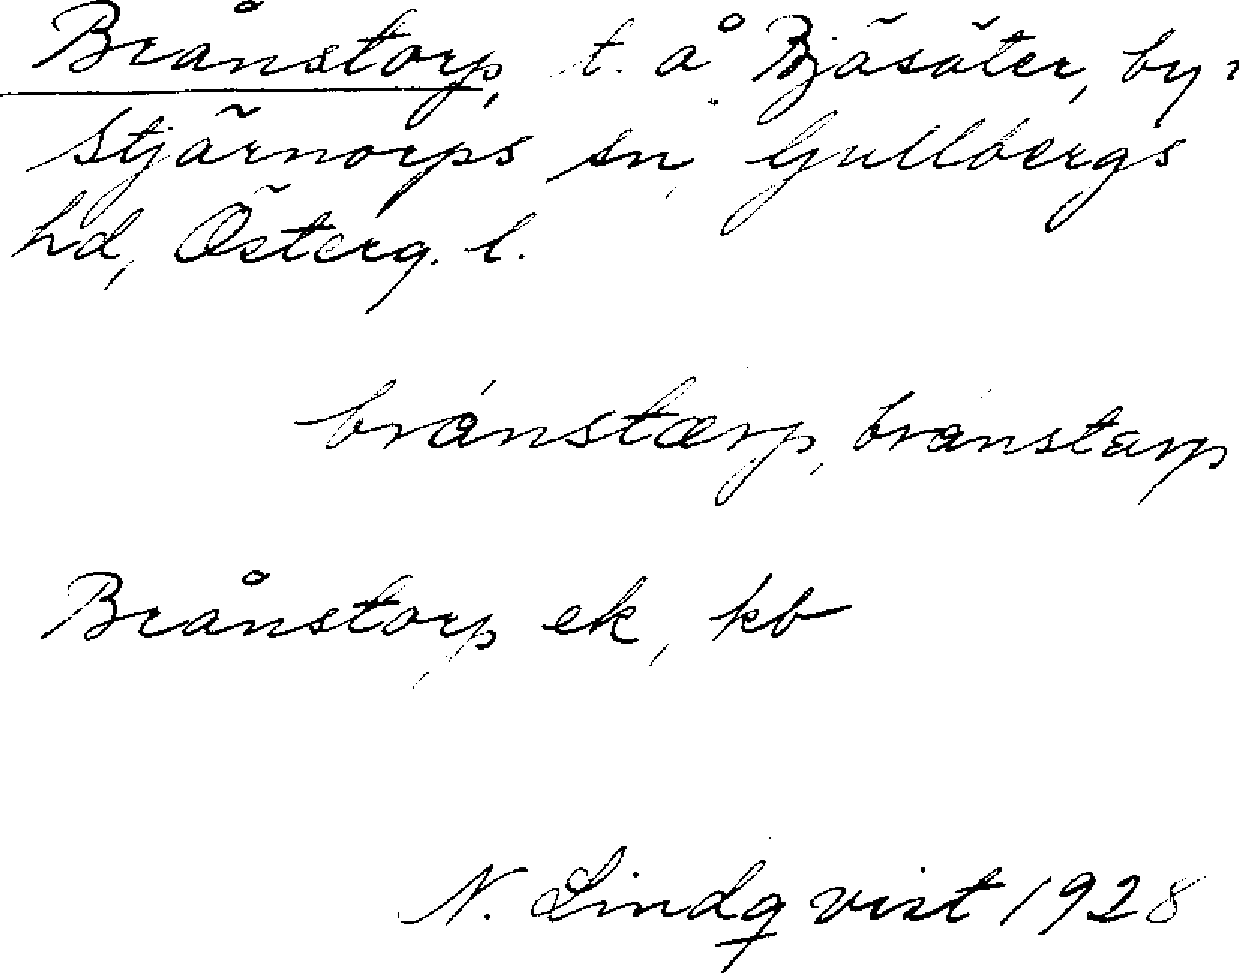 Brånstorp, t. å Bjäsäter, by i
Stjärnorps sn, Gullbergs
hd, Österg. l.
bránstærp, brånstarp
Brånstorp ek, kb
N. Lindqvist 1928